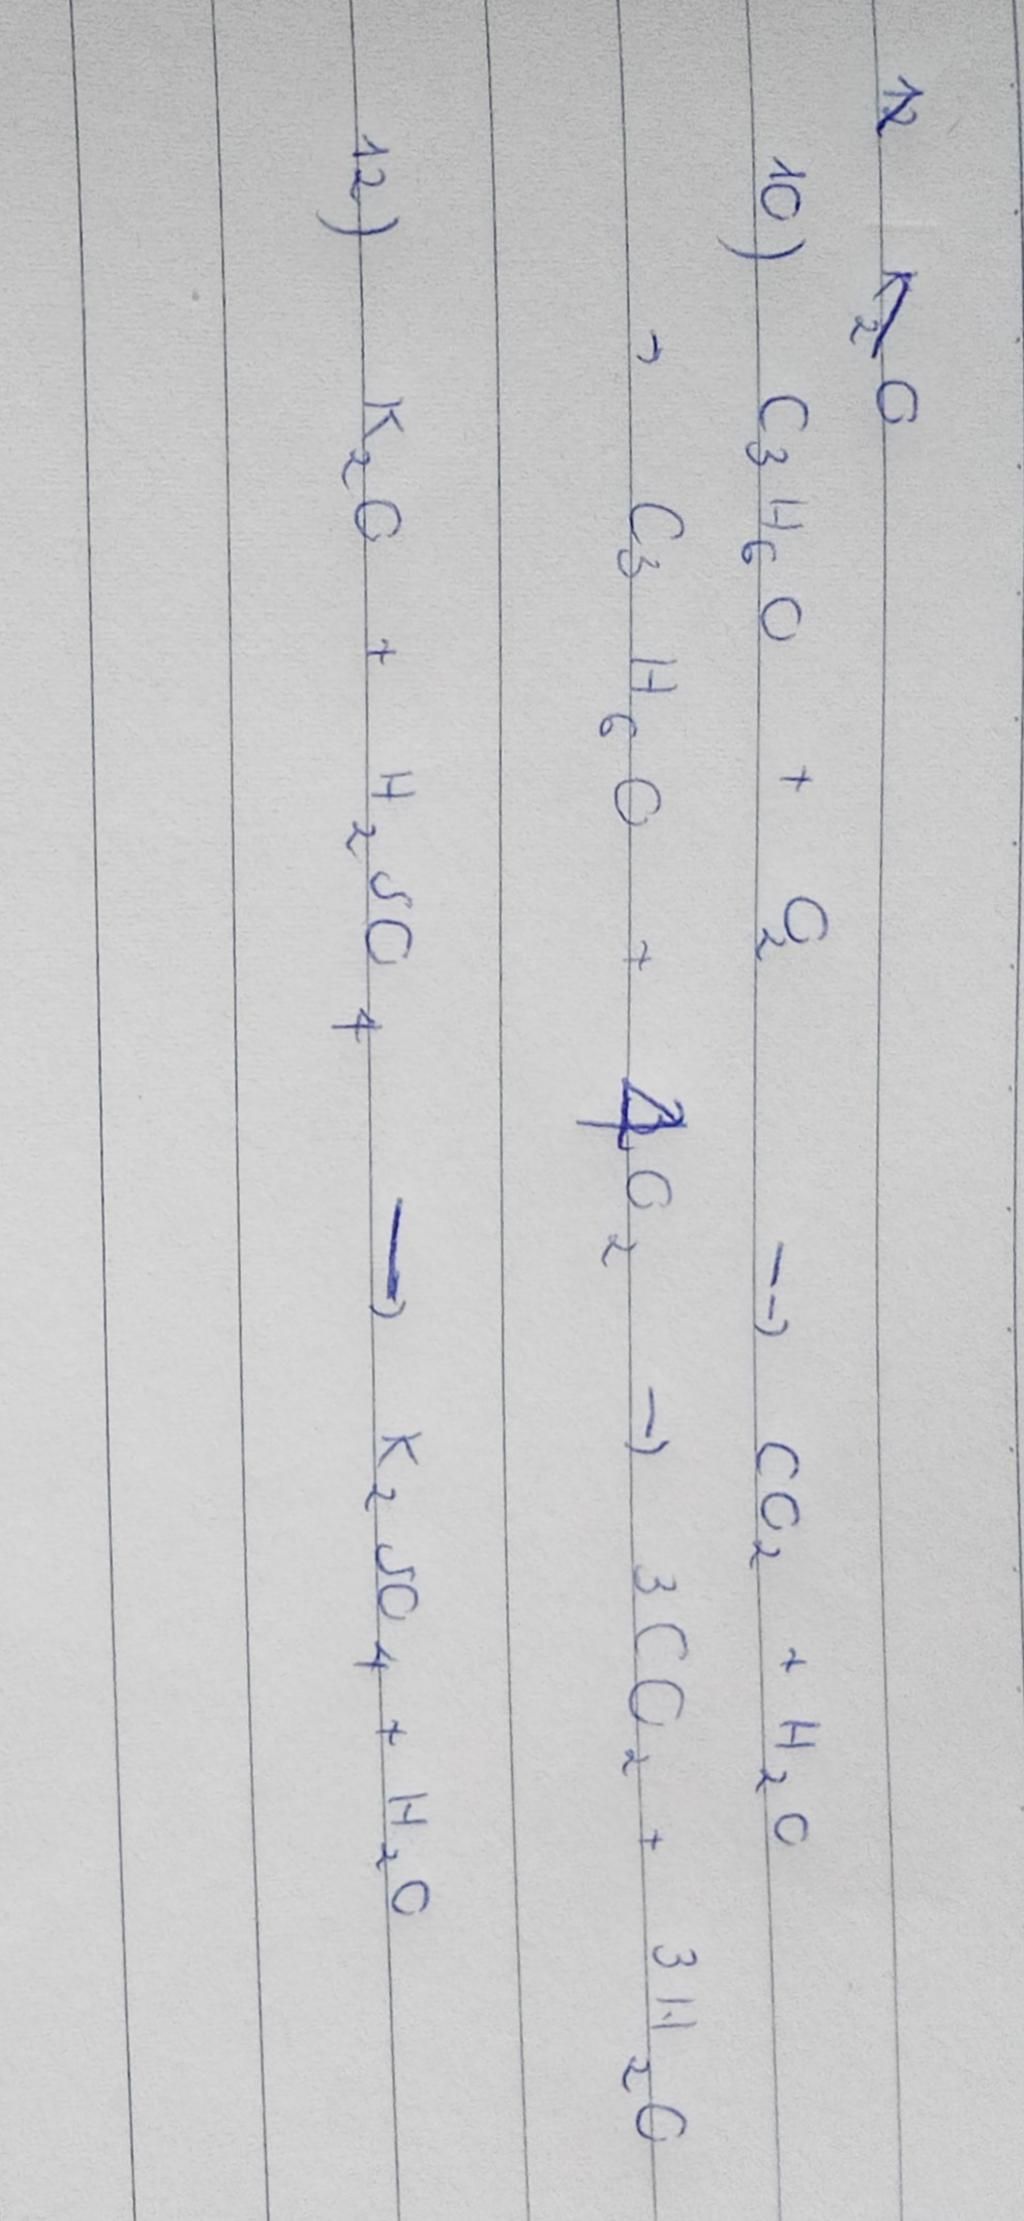 K₂O
10) C₃H₆O + O₂ → CO₂ + H₂O
→ C₃H₆O + 4O₂ → 3CO₂ + 3H₂O
12) K₂O + H₂SO₄ → K₂SO₄ + H₂O